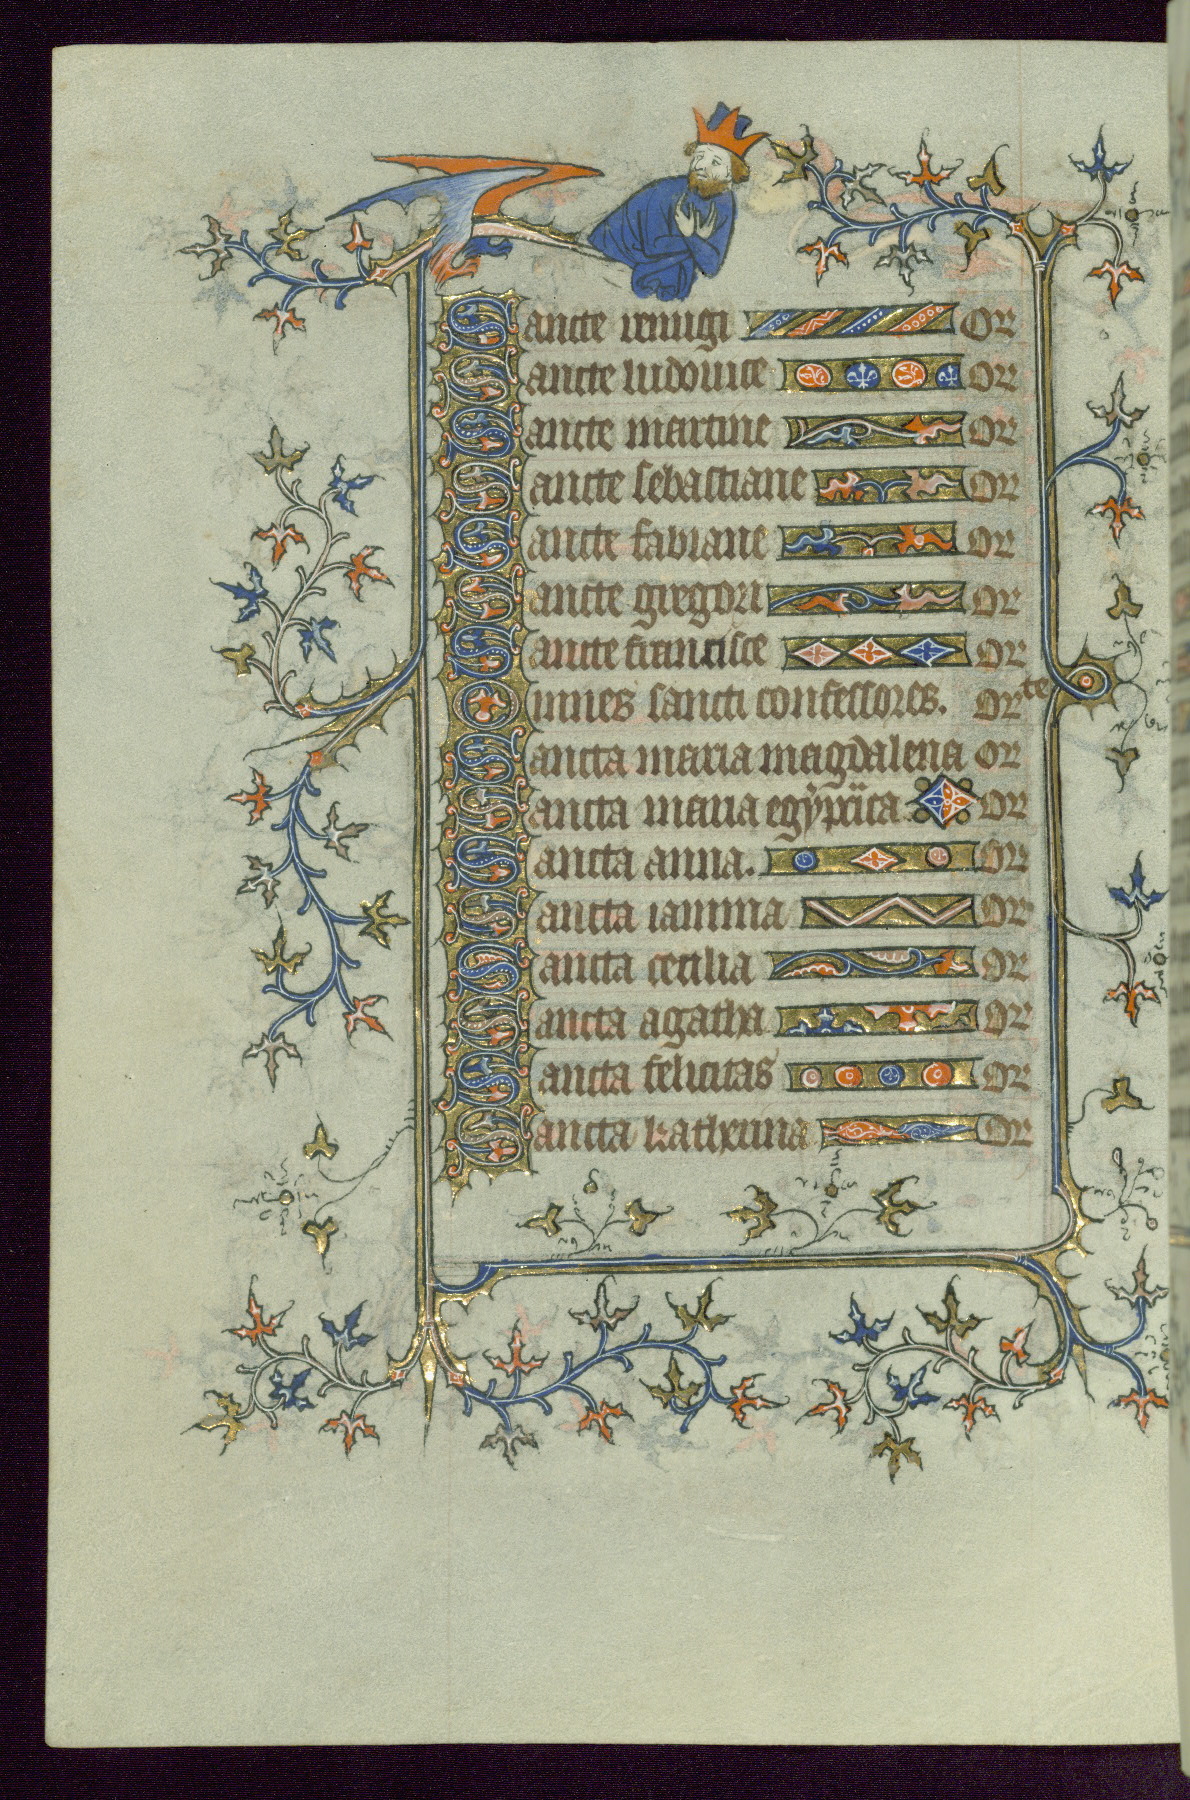 Sancte remigi Or
Sancte ludovice Or
Sancte martine Or
Sancte sebastiane Or
Sancte fabiane Or
Sancte gregori Or
Sancte francisce Or
Omnes sancti confessores. Orte
Sancta maria magdalena Or
Sancta maria egypciaca Or
Sancta anna. Or
Sancta Or
Sancta cecilia Or
Sancta agatha Or
Sancta felicitas Or
Sancta katherina Or